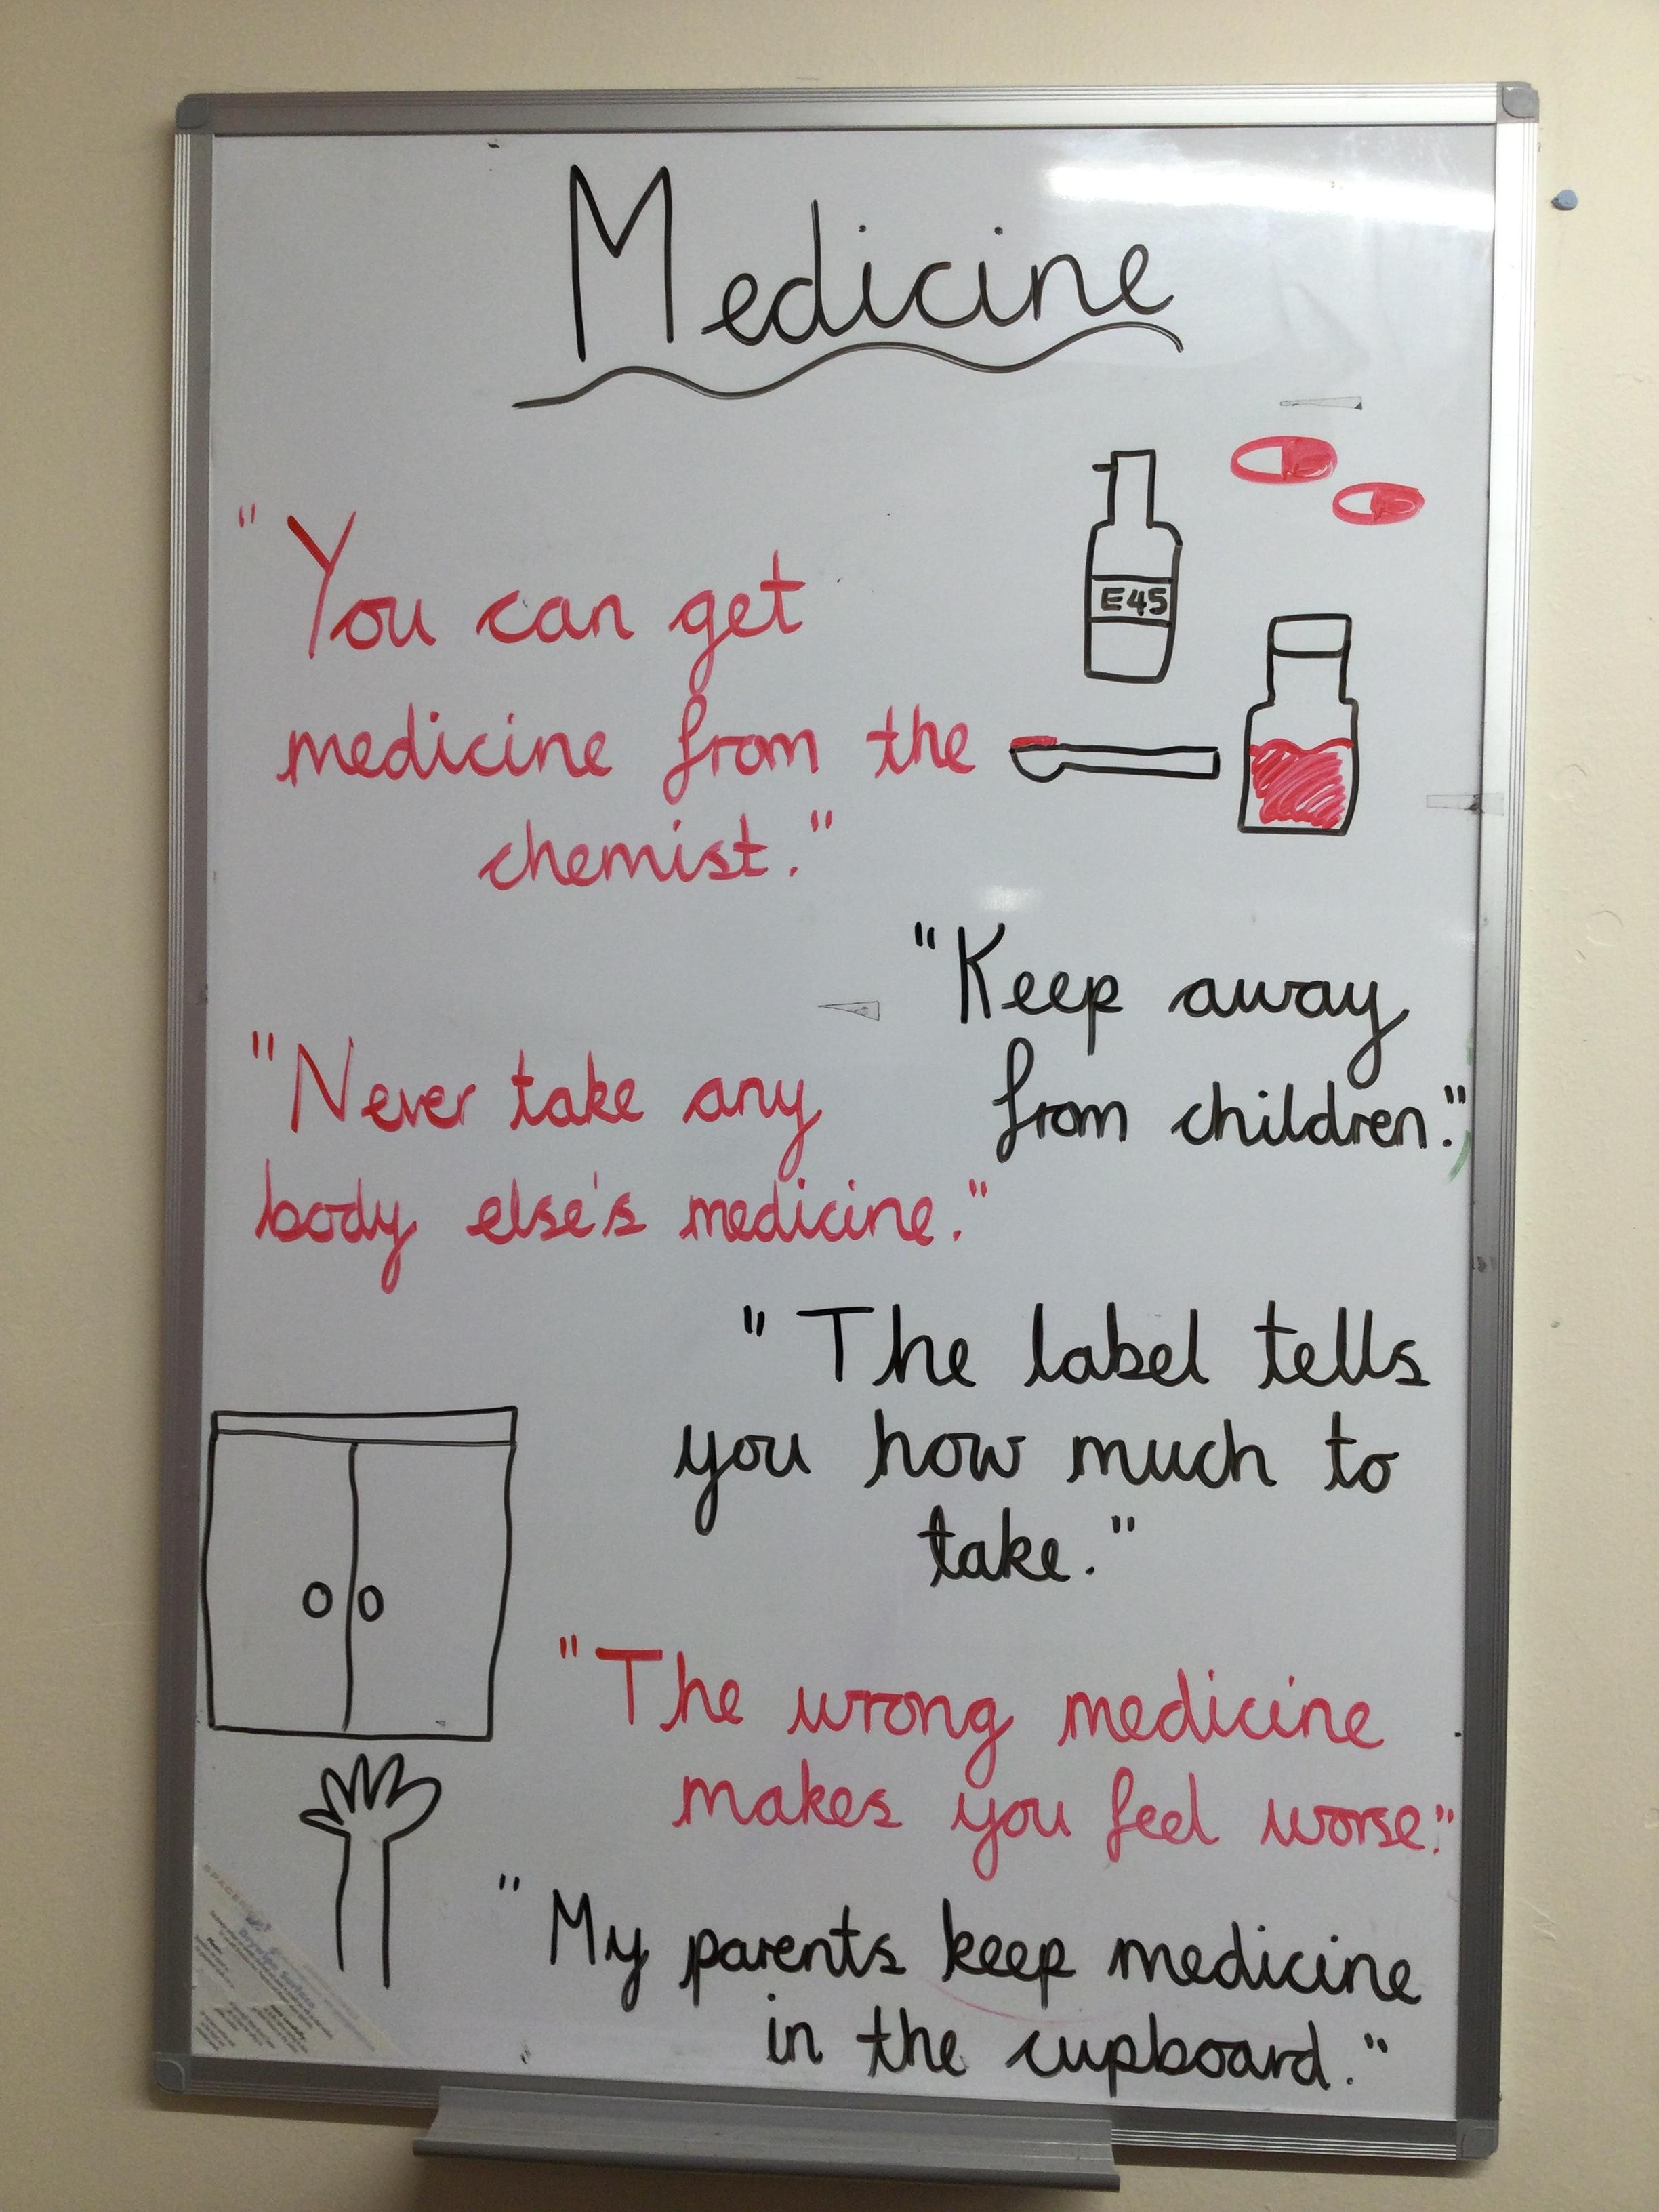 Medicine
E45
"You can get
medicine from the
chemist."
"Keep away
from children."
"Never take any
body else's medicine."
"The label tells
you how much to
take."
"The wrong medicine
makes you feel worse."
"My parents keep medicine
in the cupboard."